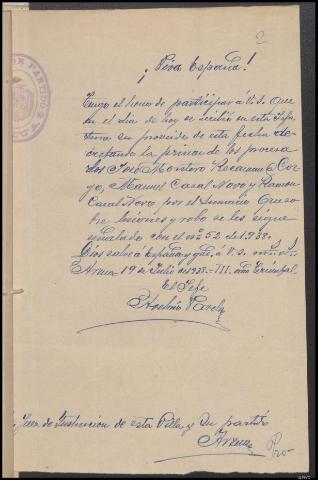 2
¡Viva España!
Tengo el honor de participar á V.S. que
en el dia de hoy se recibió en esta Jefa
tura su proveido de esta fecha de-
cretando la prision de los procesa
dos José Montero
Manuel Casal Novo y Ramon
Casal Novo por el Sumario que so
bre lesiones y robo se les sigue
señalado con el nº 52 de 1.938.
Dios salve á España y gde. á V.S. m. a.
Arzua 19 de Julio de 1938.-III. año Triunfal.
El Jefe
Avelino Varela
Juez de Instrucion de esta Villa y su partido
Arzua
DE PARTIDO